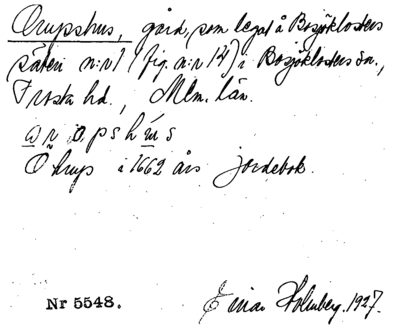 Orupshus, gård, som legat å Bosjöklosters
säteri n:r 1 (fig. n:r 14) i Bosjöklosters sn.,
Frosta hd., Mlm. län.
Ohrup i 1662 års jordebok.
Nr 5548. Einar Holmberg. 1927.